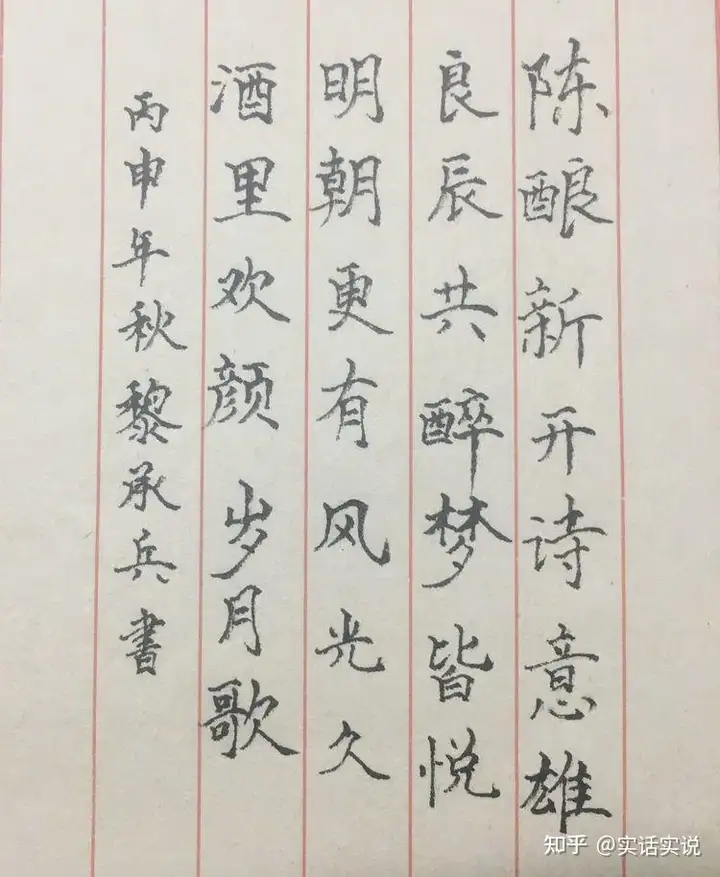 陈酿新开诗意雄
良辰共醉梦皆悦
明朝更有风光久
酒里欢颜岁月歌
丙申年秋黎承兵書
知乎 @实话实说